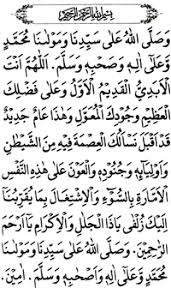 بِسْمِ اللهِ الرَّحْمٰنِ الرَّحِيْمِ
وَصَلَّى اللهُ عَلَى سَيِّدِنَا وَمَوْلٰنَا مُحَمَّدٍ
وَعَلَى اٰلِهِ وَصَحْبِهِ وَسَلَّمَ. اَللّٰهُمَّ اَنْتَ
الْاَبَدِيُّ الْقَدِيْمُ الْاَوَّلُ وَعَلَى فَضْلِكَ
الْعَظِيْمِ وَجُوْدِكَ الْمُعَوَّلُ وَهٰذَا عَامٌ جَدِيْدٌ
قَدْ اَقْبَلَ نَسْأَلُكَ الْعِصْمَةَ فِيْهِ مِنَ الشَّيْطٰنِ
وَاَوْلِيَآئِهِ وَجُنُوْدِهِ وَالْعَوْنَ عَلَى هٰذِهِ النَّفْسِ
الْاَمَّارَةِ بِالسُّوْءِ وَالْاِشْتِغَالَ بِمَا يُقَرِّبُنَا
اِلَيْكَ زُلْفٰى يَاذَا الْجَلَالِ وَالْاِكْرَامِ يَآاَرْحَمَ
الرّٰحِمِيْنَ. وَصَلَّى اللهُ عَلَى سَيِّدِنَا وَمَوْلٰنَا
مُحَمَّدٍ وَعَلَى اٰلِهِ وَاَصْحَابِهِ وَسَلَّمَ. اٰمِيْنَ.